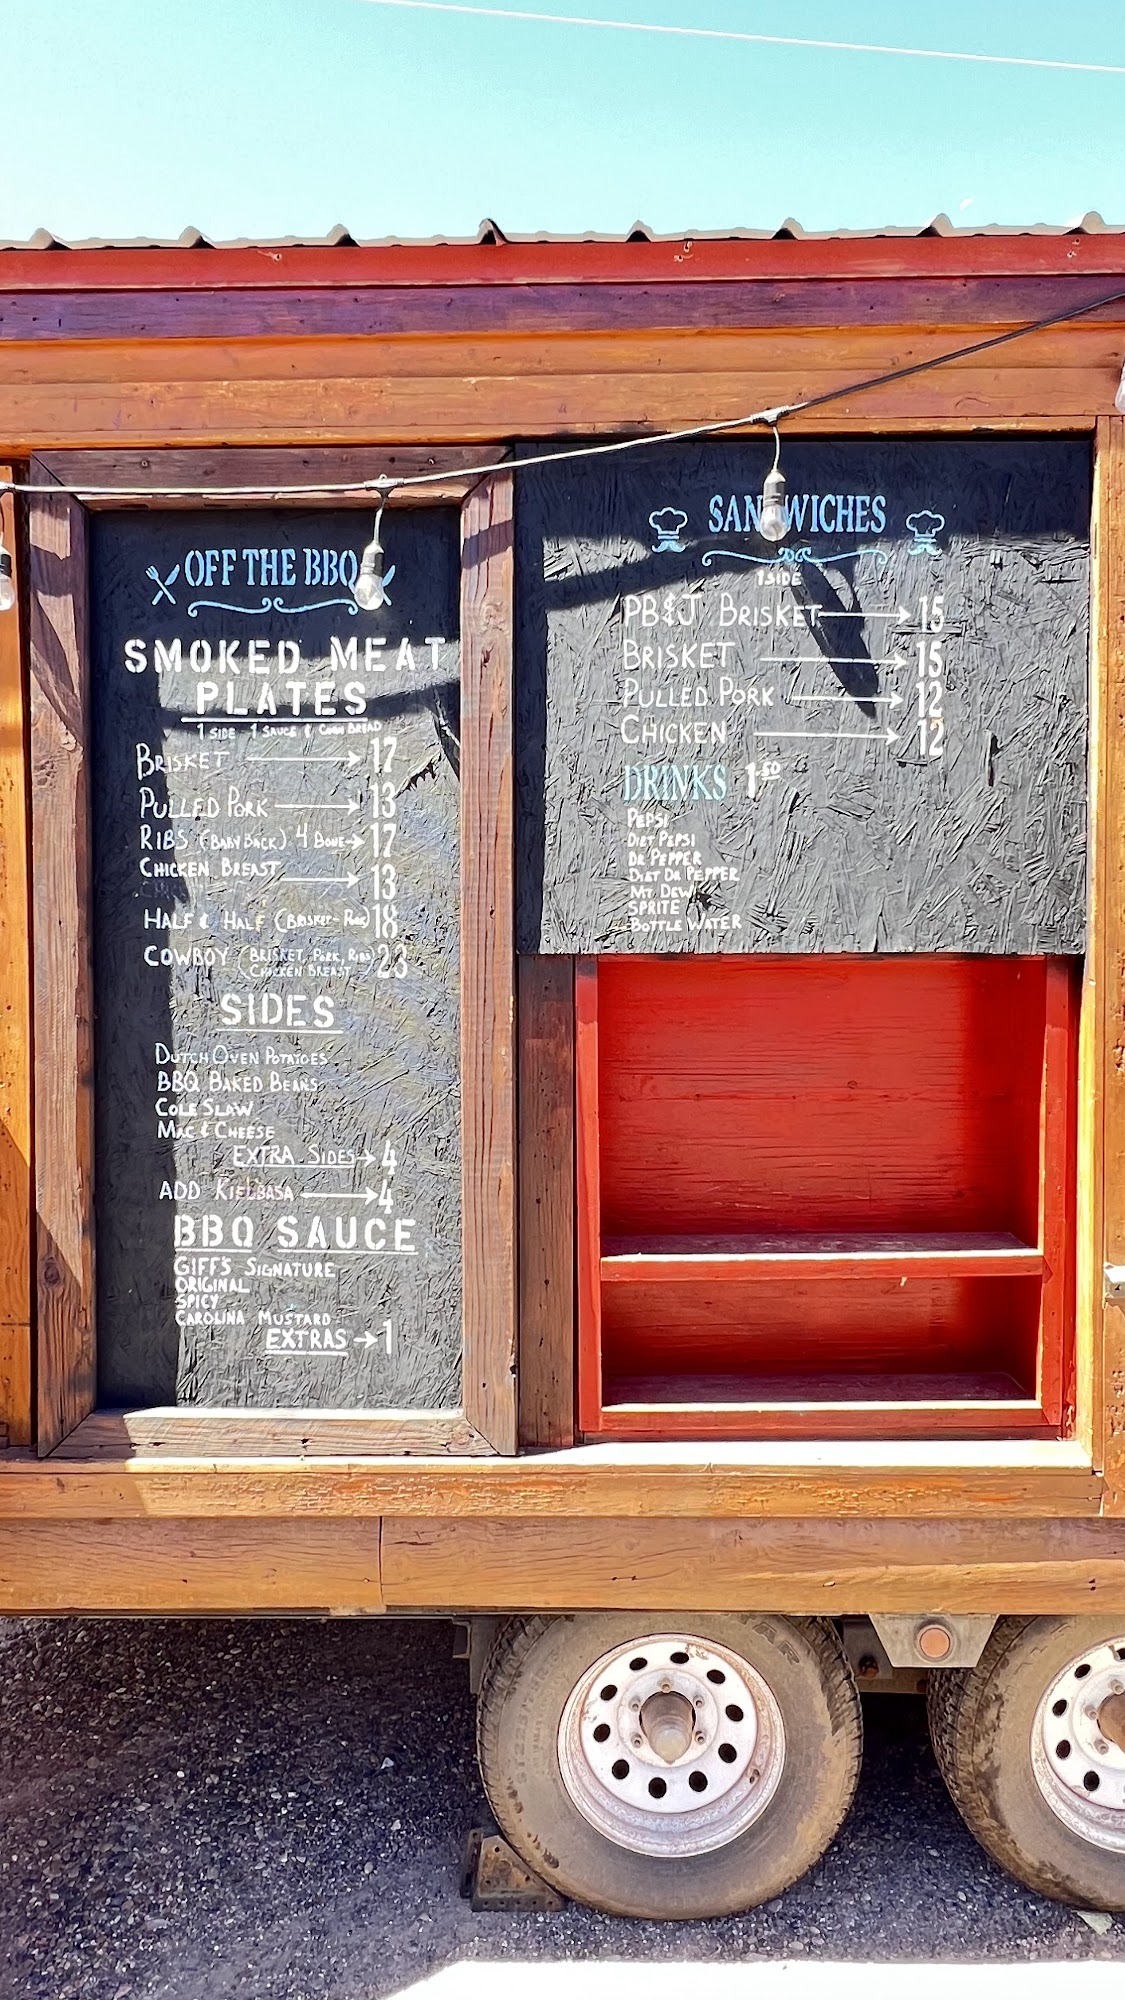 OFF THE BBQ
SMOKED MEAT
PLATES
1 SIDE 1 SAUCE & CORN BREAD
BRISKET → 17
PULLED PORK → 13
RIBS (BABY BACK) 4 BONE → 17
CHICKEN BREAST → 13
HALF & HALF (BRISKET-RIBS) 18
COWBOY (BRISKET, PORK, RIBS
CHICKEN BREAST) 23
SIDES
DUTCH OVEN POTATOES
BBQ BAKED BEANS
COLE SLAW
MAC & CHEESE
EXTRA SIDES → 4
ADD KIELBASA → 4
BBQ SAUCE
GIFFS SIGNATURE
ORIGINAL
SPICY
CAROLINA MUSTARD
EXTRAS → 1
SANDWICHES
1 SIDE
PB&J BRISKET → 15
BRISKET → 15
PULLED PORK → 12
CHICKEN → 12
DRINKS 1.50
PEPSI
DIET PEPSI
DR PEPPER
DIET DR PEPPER
MT. DEW
SPRITE
BOTTLE WATER